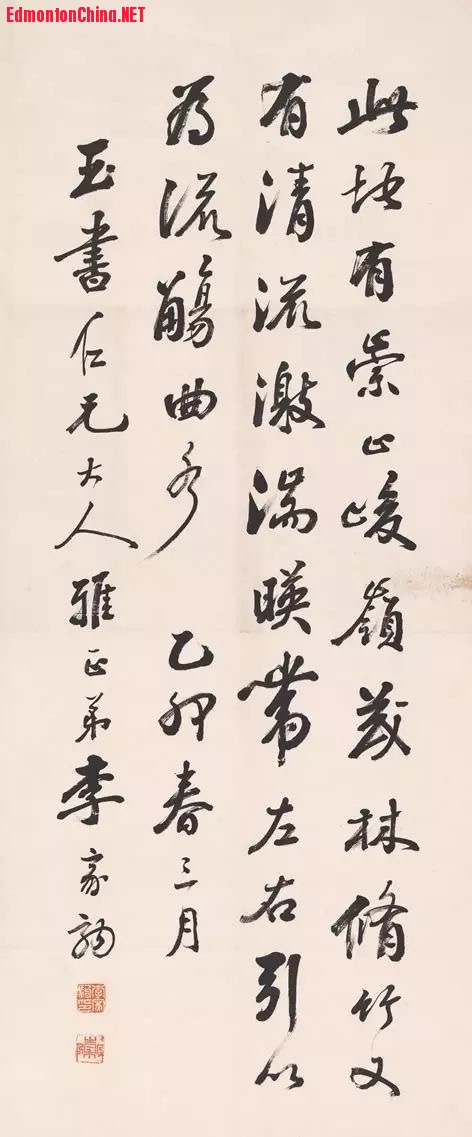 EdmontonChina.NET
此地有崇山峻嶺茂林脩竹又
有清流激湍暎帶左右引以
為流觴曲水 乙卯春三月
玉書仁兄大人雅正弟李家駒